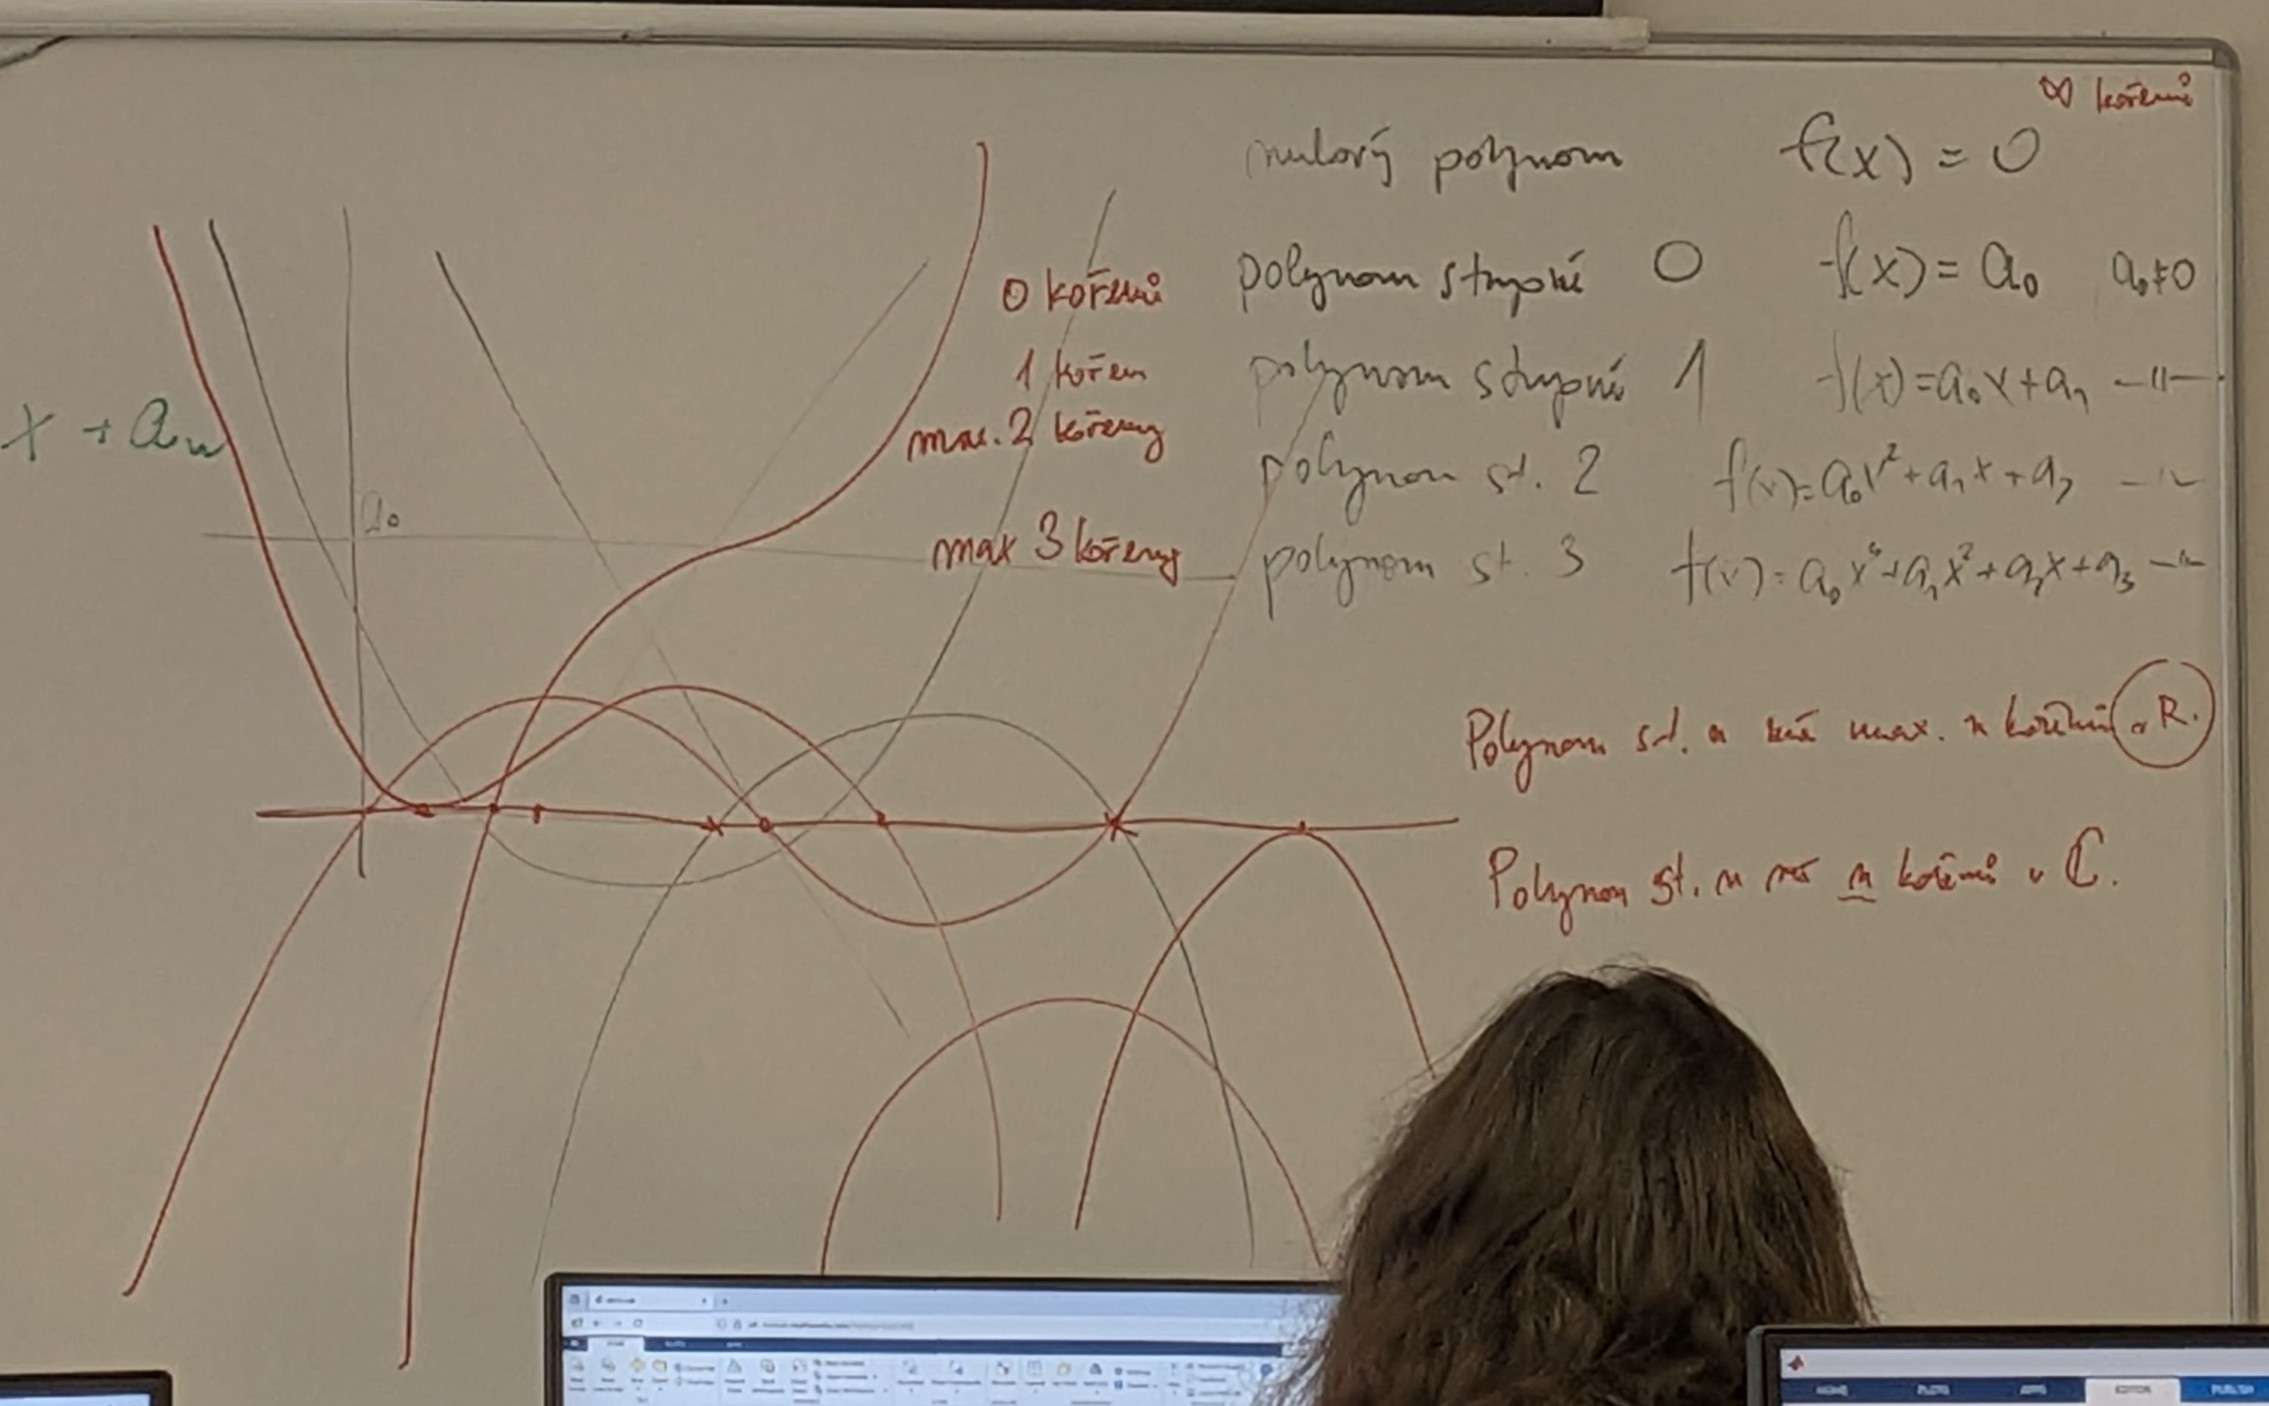 ∞ kořenů
nulový polynom f(x) = 0
0 kořenů polynom stupně 0 f(x) = a₀ a₀≠0
1 kořen polynom stupně 1 f(x)=a₀x+a₁ —||—
max. 2 kořeny polynom st. 2 f(x)=a₀x²+a₁x+a₂ —||—
x + aₙ
a₀
max 3 kořeny polynom st. 3 f(x)=a₀x³+a₁x²+a₂x+a₃ —||—
Polynom st. n má max. n kořenů v R.
Polynom st. n má n kořenů v C.
PLOTS
APPS
EDITOR
PUBLISH